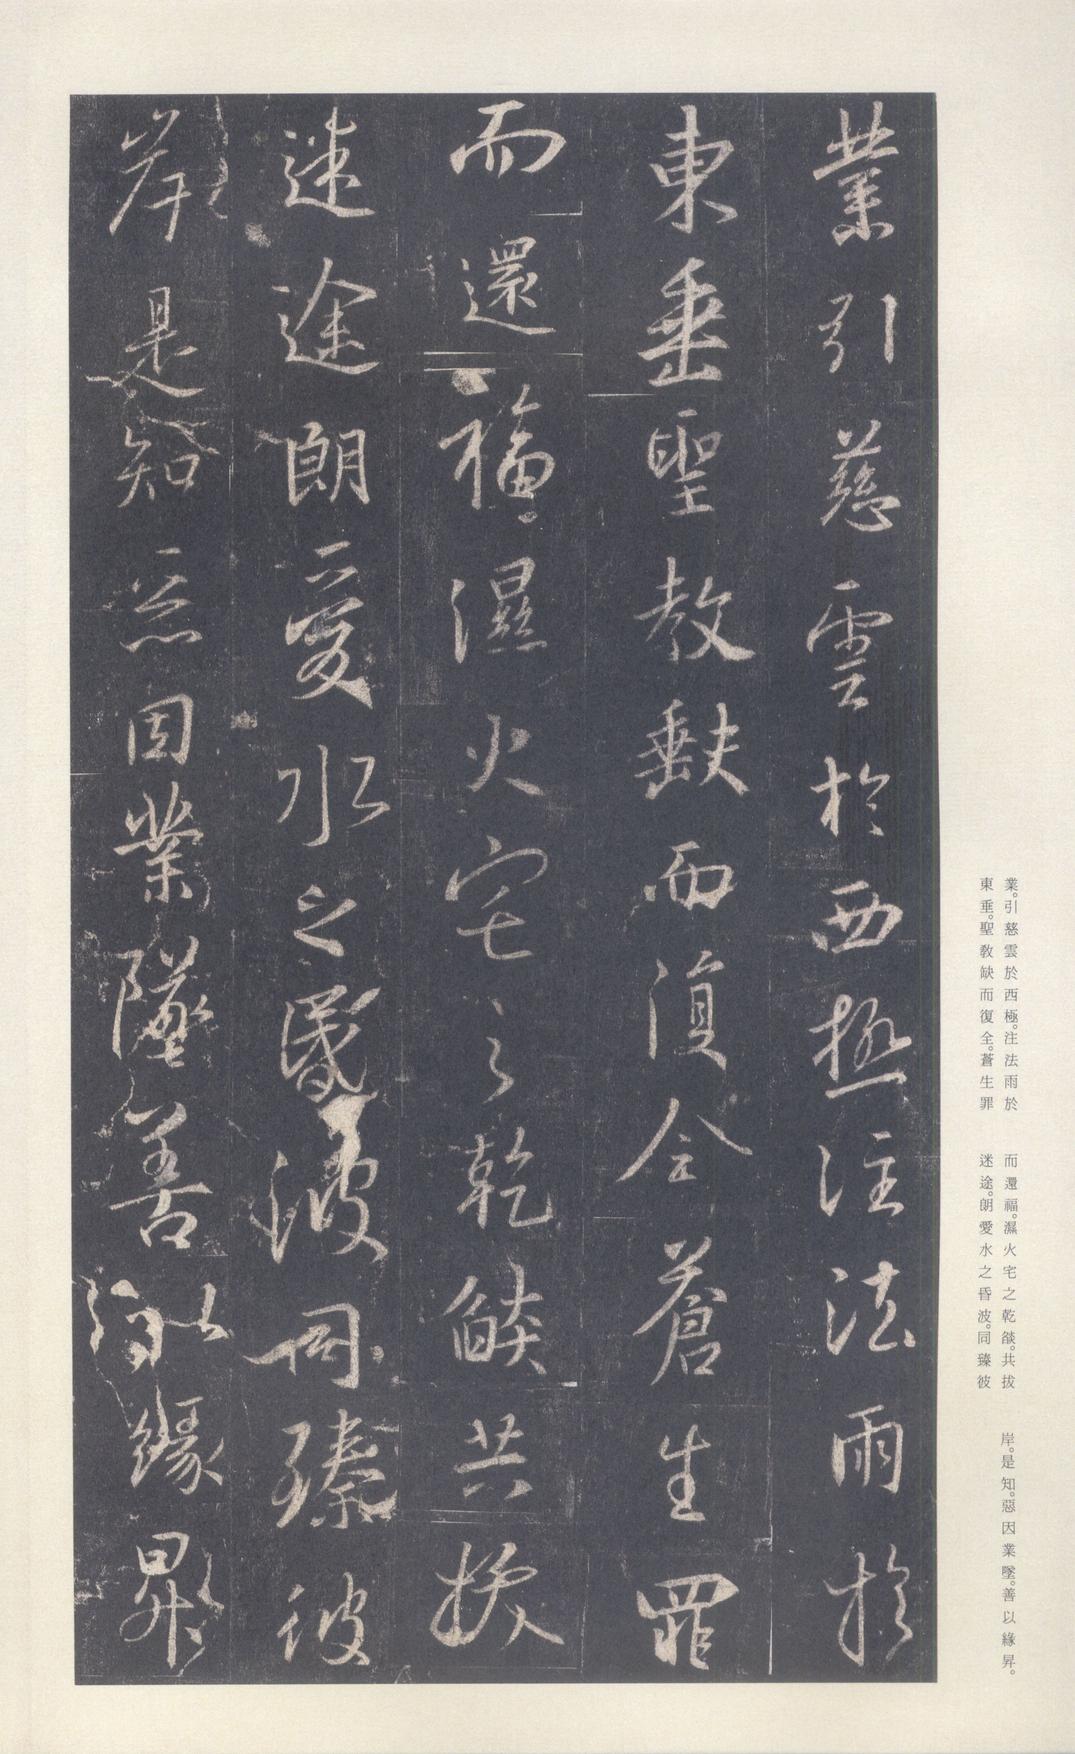 業引慈雲於西極注法雨於
東垂聖教缺而復全蒼生罪
而還福濕火宅之乾燄共拔
迷途朗愛水之昏波同臻彼
岸是知惡因業墜善以緣昇
業。引慈雲於西極。注法雨於
東垂。聖教缺而復全。蒼生罪
而還福。濕火宅之乾燄。共拔
迷途。朗愛水之昏波。同臻彼
岸。是知。惡因業墜。善以緣昇。